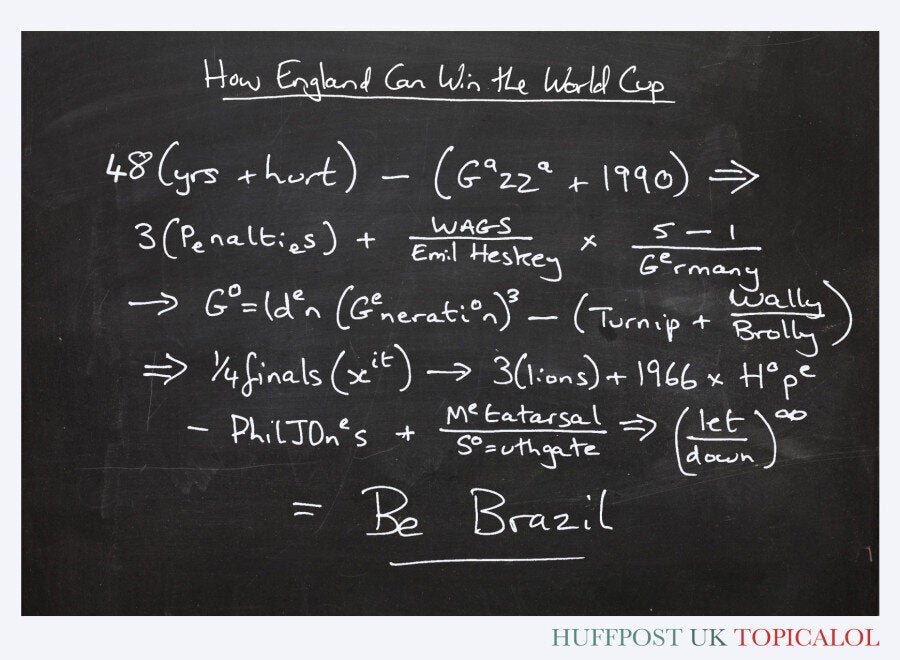 How England Can Win the World Cup
48 (yrs + hurt) − (Gᵃzzᵃ + 1990) ⇒
3 (Penalties) + WAGS/Emil Heskey × 5 − 1/Germany
→ G⁰=ldᵉn (Gᵉneratiᵒn)³ − (Turnip + Wally/Brolly)
⇒ 1/4 finals (xⁱᵗ) → 3(lions) + 1966 × Hᵒpᵉ
− PhilJOnᵉs + Mᵉtatarsal/Sᵒ=uthgate ⇒ (let/down)^∞
= Be Brazil
HUFFPOST UK TOPICALOL